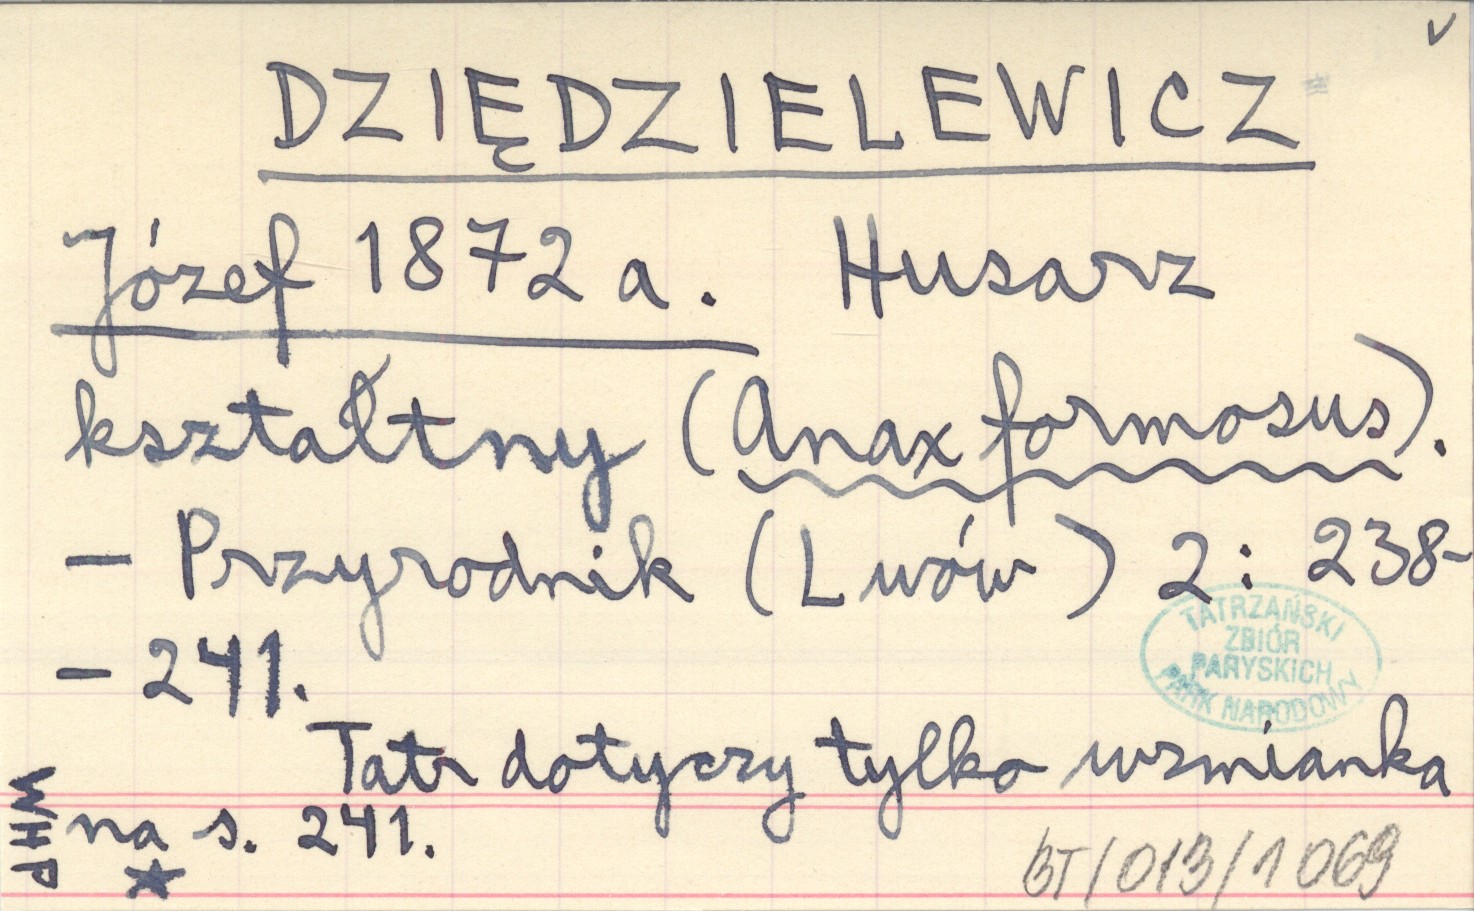 v
DZIĘDZIELEWICZ
Józef 1872a. Husarz
kształtny (Anax formosus).
– Przyrodnik (Lwów) 2: 238-
– 241.
TATRZAŃSKI
ZBIÓR
PARYSKICH
PARK NARODOWY
Tatr dotyczy tylko wzmianka
na s. 241.
WHP
BT/013/1069